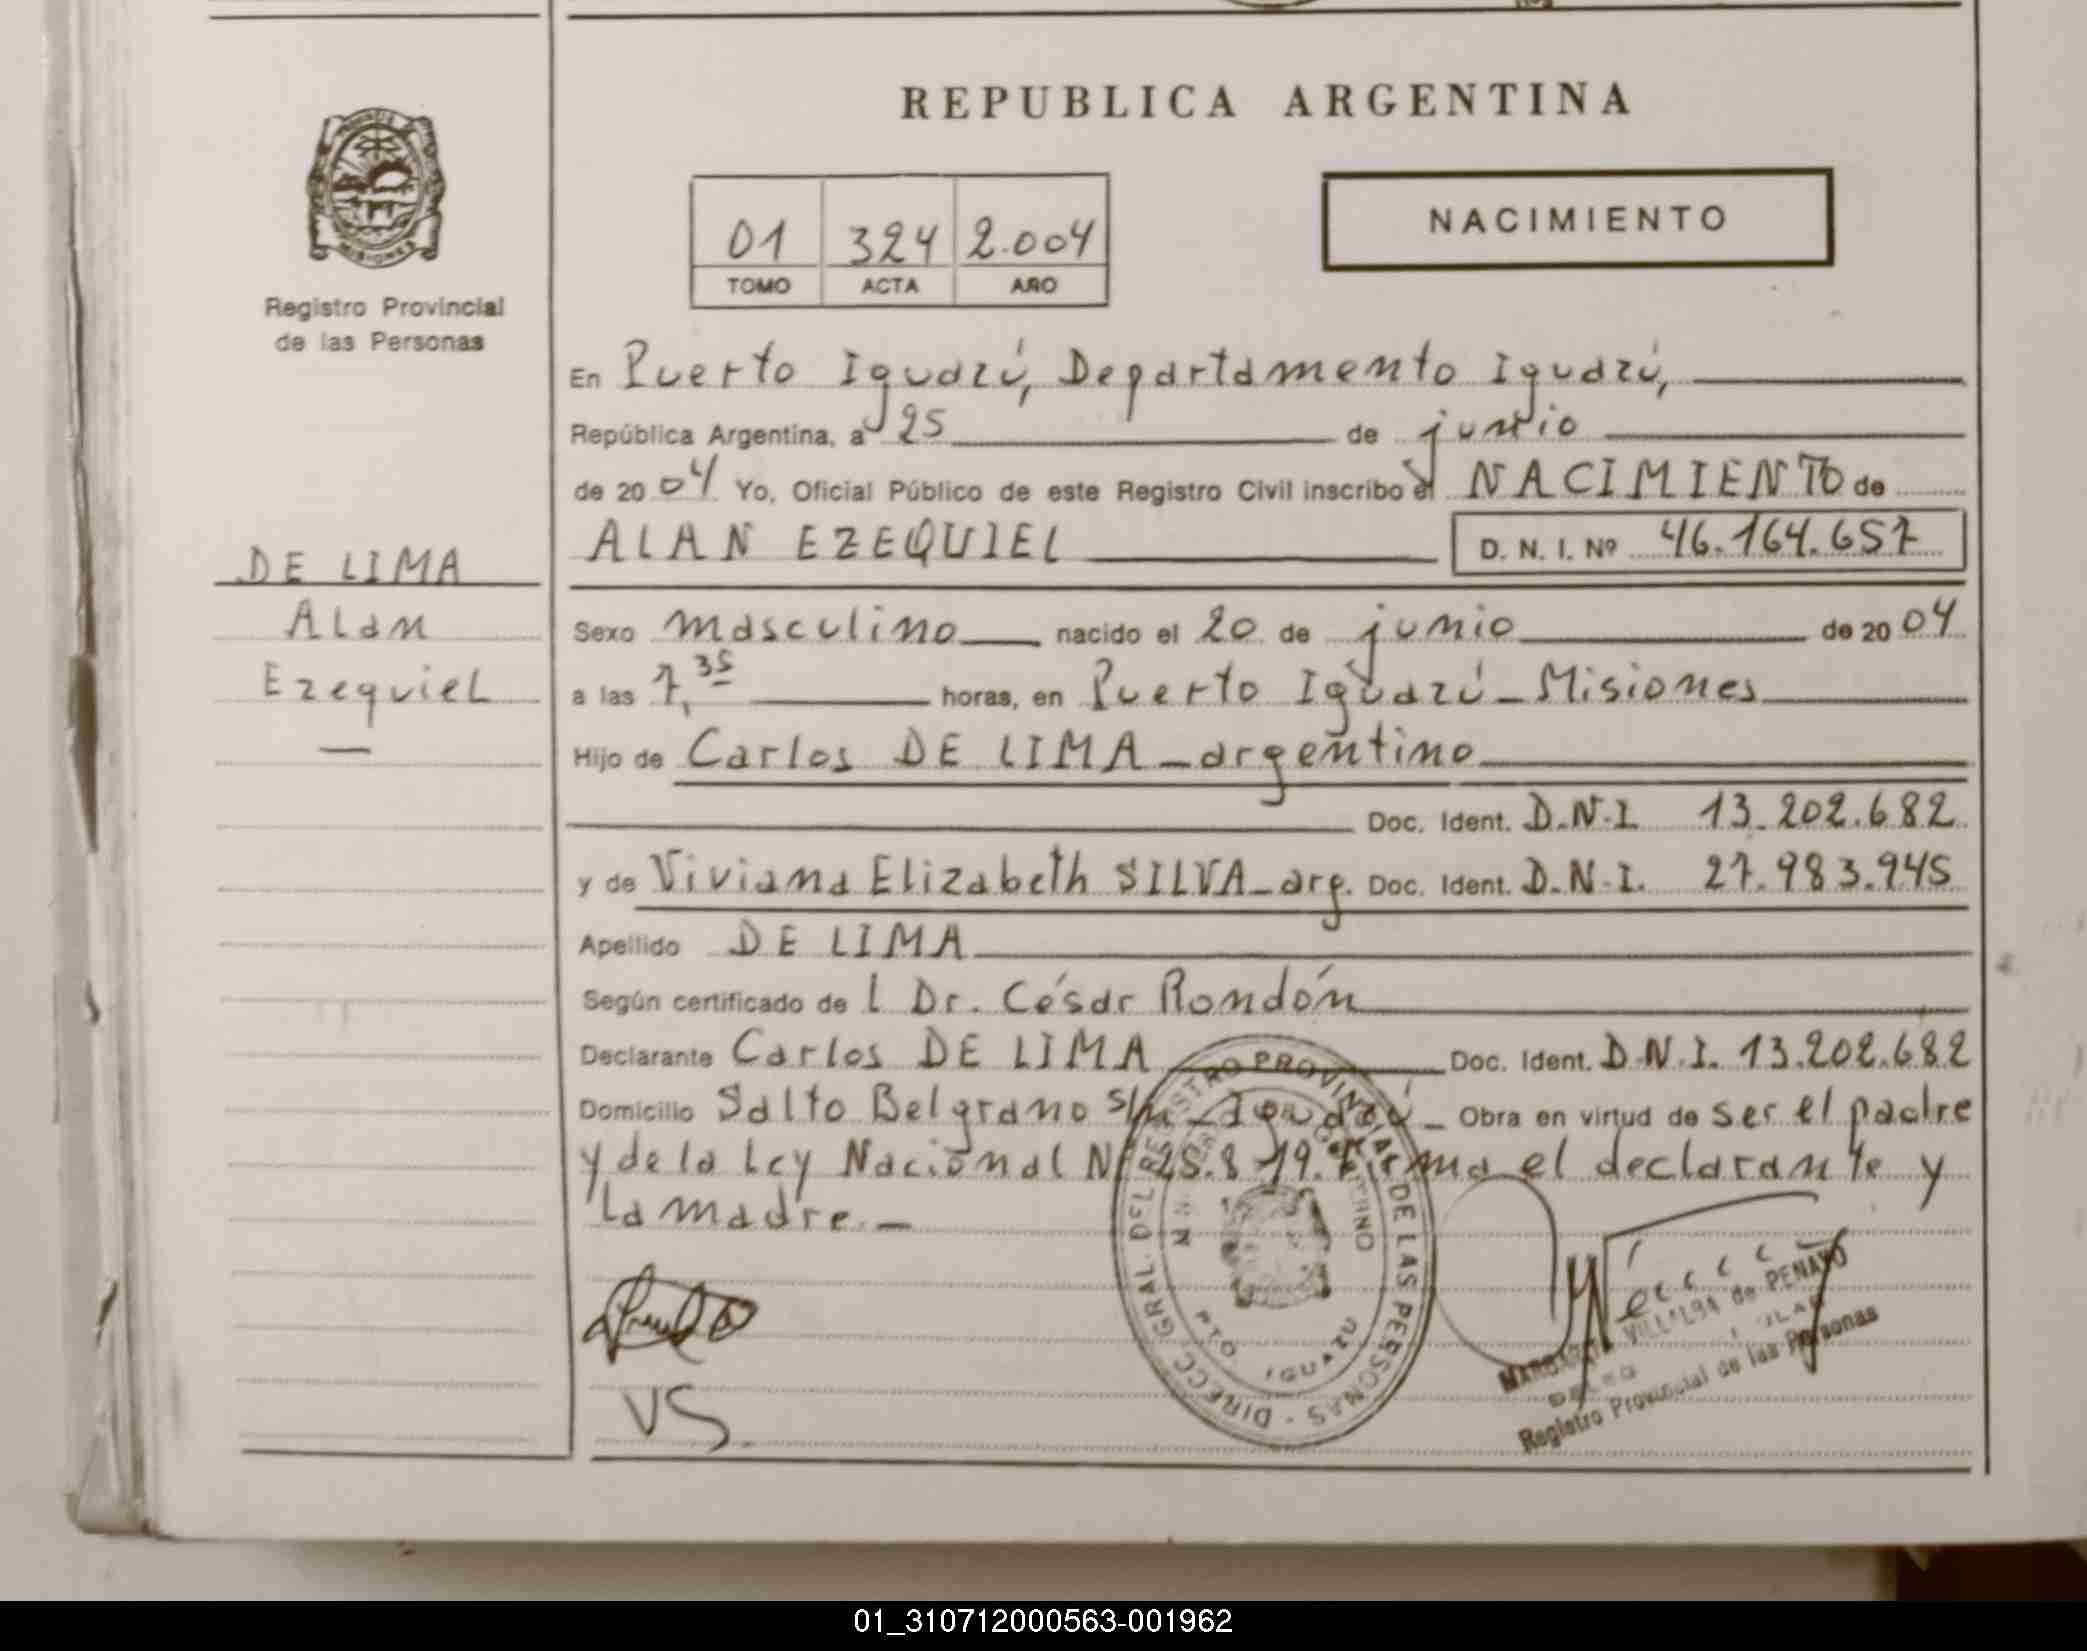 REPUBLICA ARGENTINA
NACIMIENTO
01 324 2.004
TOMO ACTA AÑO
Registro Provincial
de las Personas
En Puerto Iguazú, Departamento Iguazú,
República Argentina, a 25 de junio
de 2004 Yo, Oficial Público de este Registro Civil inscribo el NACIMIENTO de
ALAN EZEQUIEL D. N. I. Nº 46.164.657
DE LIMA
Alan
Ezequiel
Sexo masculino nacido el 20 de junio de 2004
a las 7,35 horas, en Puerto Iguazú - Misiones
Hijo de Carlos DE LIMA - argentino
Doc. Ident. D.N.I. 13.202.682
y de Viviana Elizabeth SILVA - arg. Doc. Ident. D.N.I. 27.983.945
Apellido DE LIMA
Según certificado del Dr. César Rondón
Declarante Carlos DE LIMA Doc. Ident. D.N.I. 13.202.682
Domicilio Salto Belgrano s/n - Iguazú - Obra en virtud de ser el padre
y de la Ley Nacional Nº 25.819. Firma el declarante y
la madre. -
VS
DIRECC. GRAL. DEL REGISTRO PROVINCIAL DE LAS PERSONAS
PTO. IGUAZU
de PEÑAYO
Registro Provincial de las Personas
01_310712000563-001962